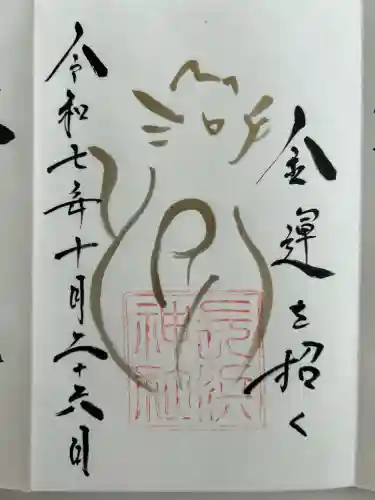 金運を招く
長浜神社
令和七年十月二十六日